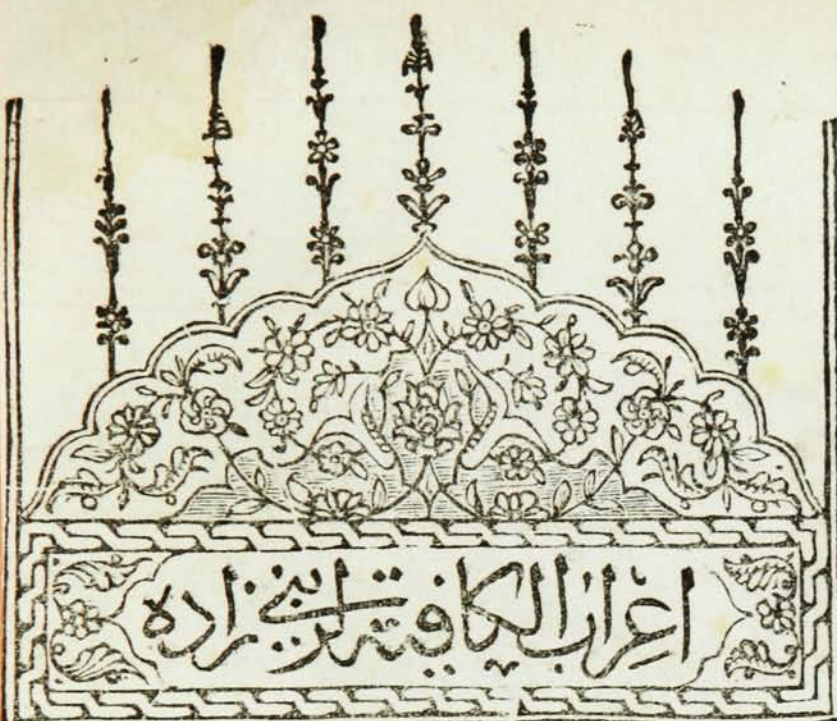 اعراب الكافية لزيني زاده